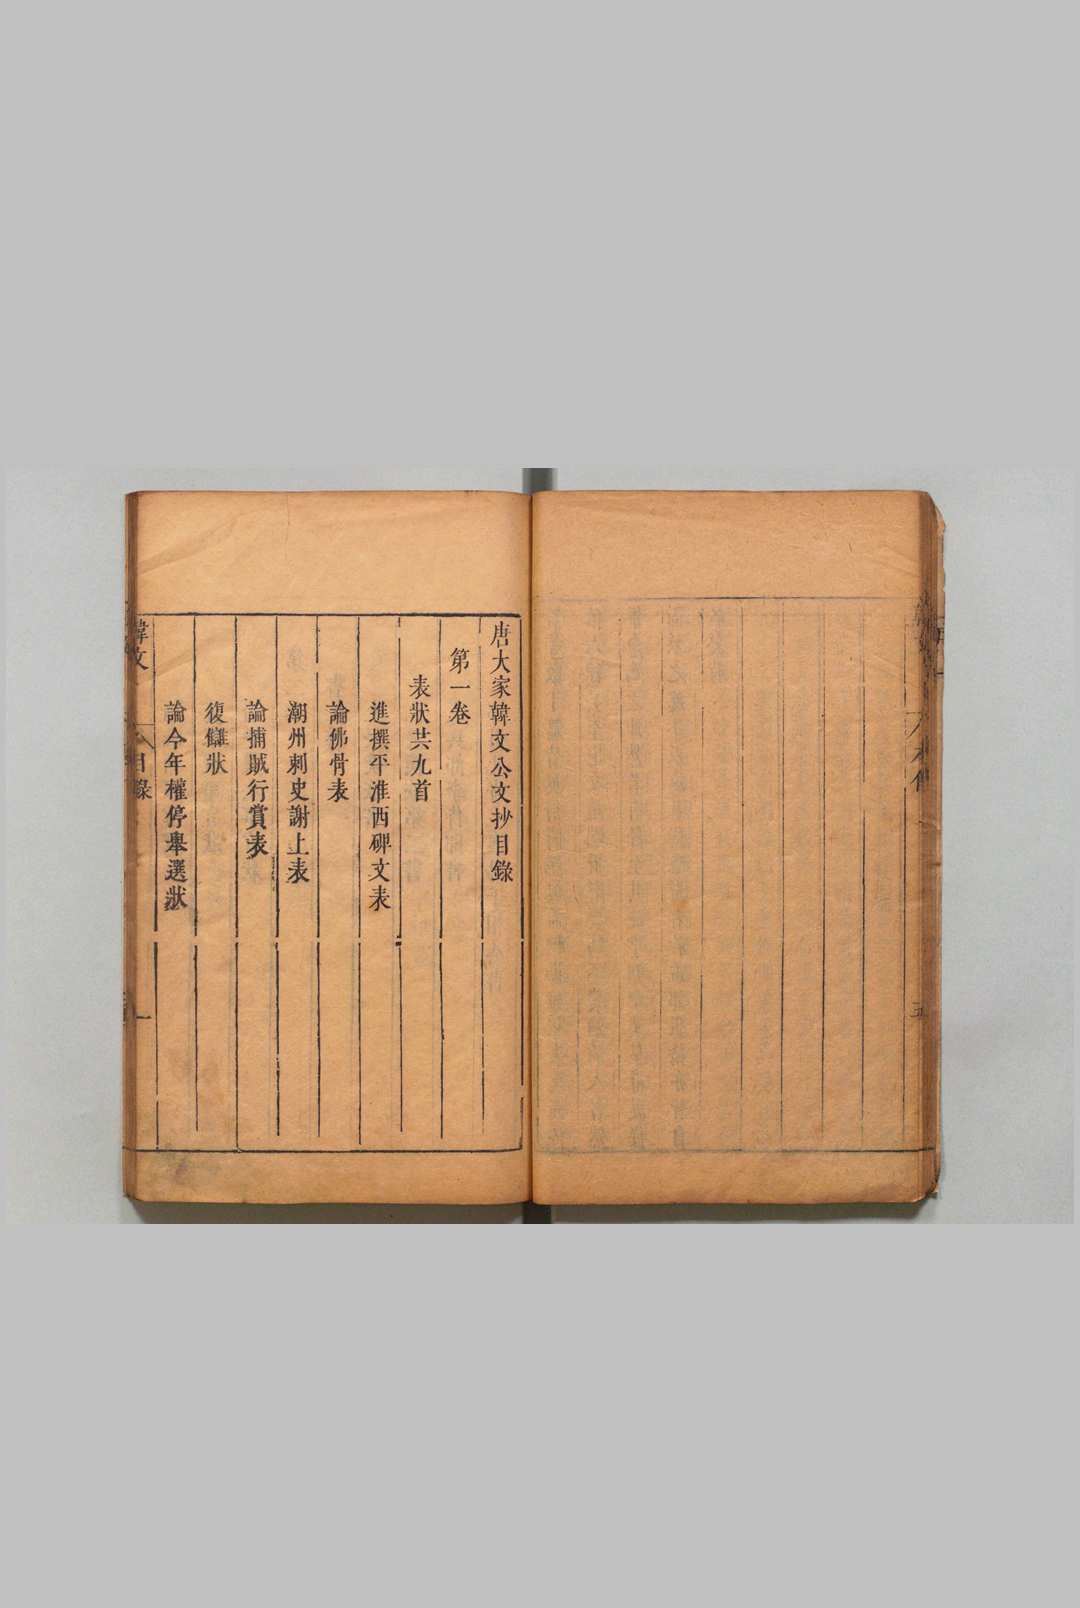 唐大家韓文公文抄目錄
第一卷
表狀共九首
進撰平淮西碑文表
論佛骨表
潮州刺史謝上表
論捕賊行賞表
復讎狀
論今年權停舉選狀
韓文
目錄
一